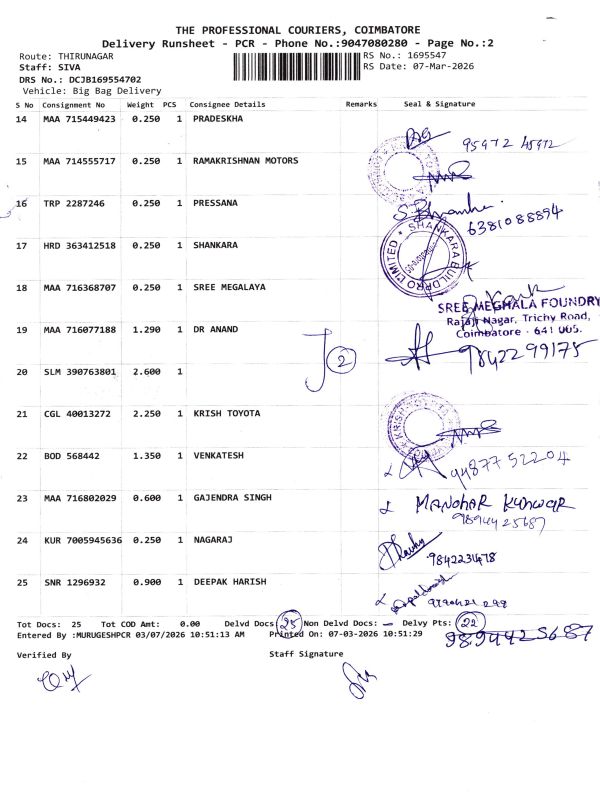 THE PROFESSIONAL COURIERS, COIMBATORE
Delivery Runsheet - PCR - Phone No.:9047080280 - Page No.:2
Route: THIRUNAGAR
RS No.: 1695547
Staff: SIVA
RS Date: 07-Mar-2026
DRS No.: DCJB169554702
Vehicle: Big Bag Delivery
S No Consignment No Weight PCS Consignee Details Remarks Seal & Signature
14 MAA 715449423 0.250 1 PRADESKHA
95972 45972
15 MAA 714555717 0.250 1 RAMAKRISHNAN MOTORS
16 TRP 2287246 0.250 1 PRESSANA
6381088894
17 HRD 363412518 0.250 1 SHANKARA
SHANKARA BUILDPRO LIMITED
18 MAA 716368707 0.250 1 SREE MEGALAYA
SREE MEGHALA FOUNDRY
Rajaji Nagar, Trichy Road,
Coimbatore - 641 005.
19 MAA 716077188 1.290 1 DR ANAND
2
9842299175
20 SLM 390763801 2.600 1
21 CGL 40013272 2.250 1 KRISH TOYOTA
KRISH TOYOTA
22 BOD 568442 1.350 1 VENKATESH
94877 52204
23 MAA 716802029 0.600 1 GAJENDRA SINGH
MANOHAR KUNWAR
9894425687
24 KUR 7005945636 0.250 1 NAGARAJ
9842231478
25 SNR 1296932 0.900 1 DEEPAK HARISH
Tot Docs: 25 Tot COD Amt: 0.00 Delvd Docs: 25 Non Delvd Docs: — Delvy Pts: 22
Entered By :MURUGESHPCR 03/07/2026 10:51:13 AM Printed On: 07-03-2026 10:51:29
9894425687
Verified By Staff Signature